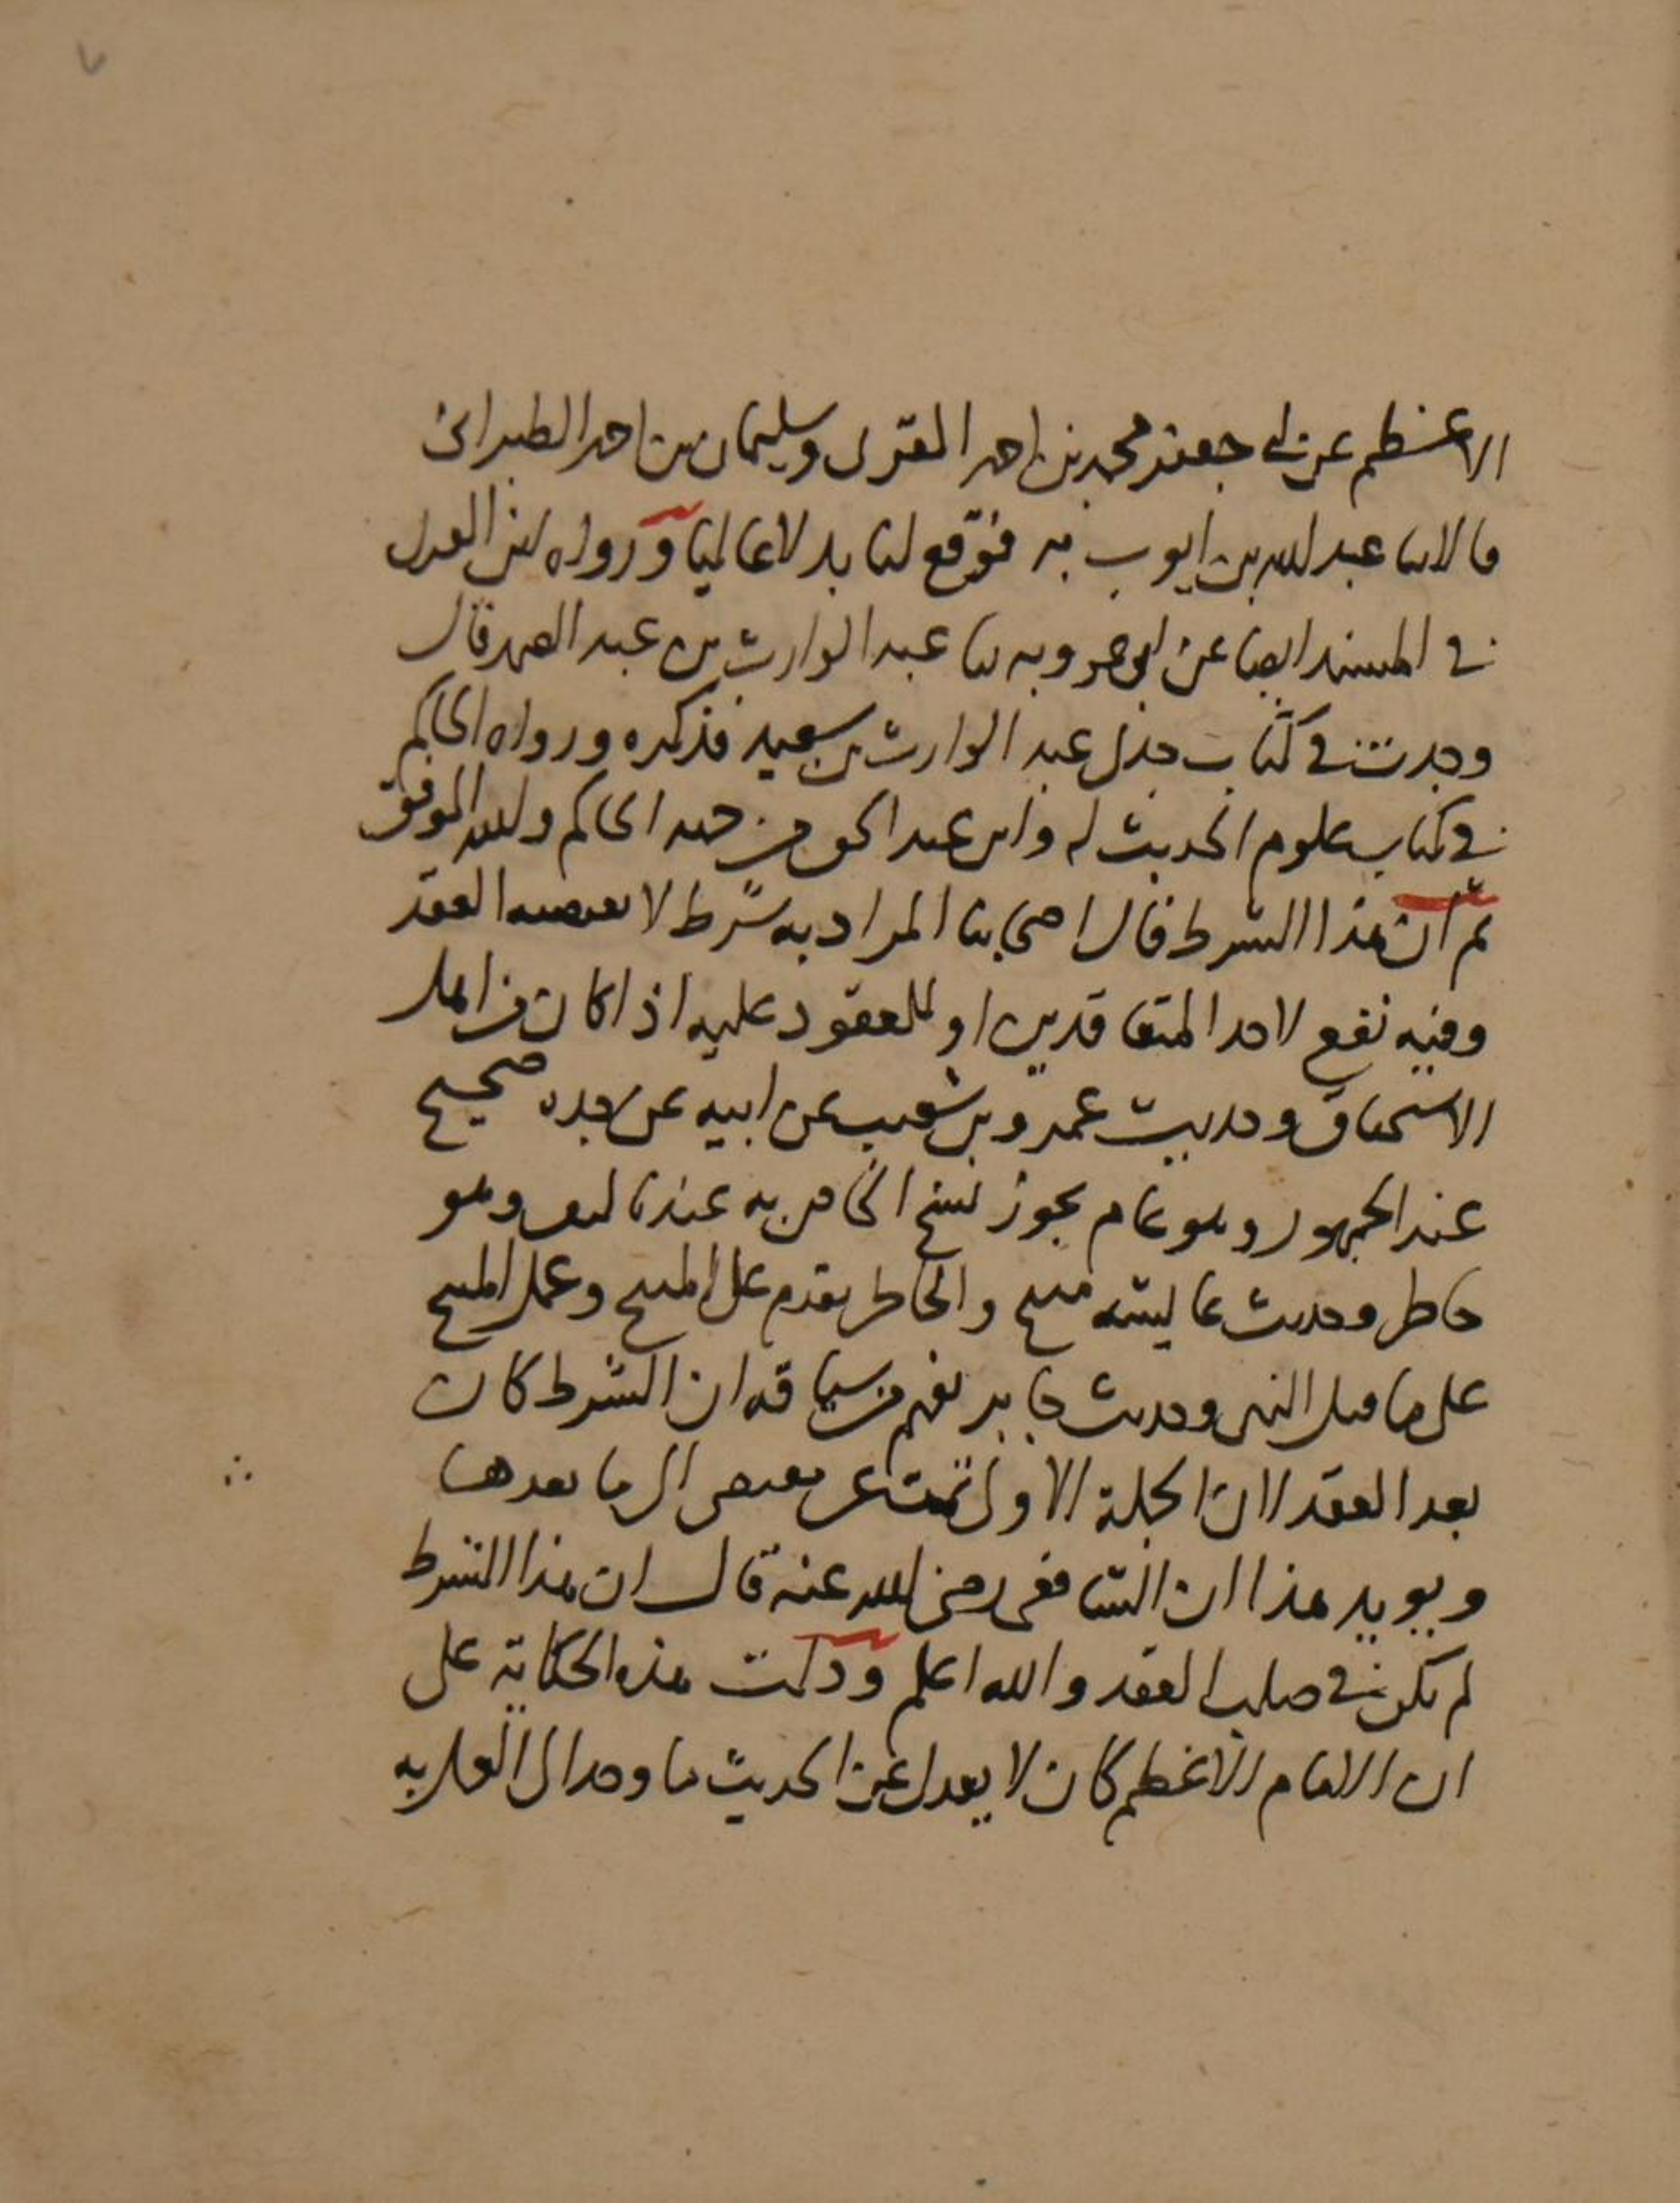 ٧
الاعظم عن ابي جعفر محمد بن احمد المقرى وسليمان بن احمد الطبراني
قالا ثنا عبد الله بن ايوب به فوقع لنا بدلا عاليا ورواه العدل
في المسند ايضا عن ابي عروبه ثنا عبد الوارث بن عبد الصمد قال
وجدت في كتاب جدى عبد الوارث بن سعيد فذكره ورواه الحاكم
في كتاب علوم الحديث له وابن عبد الحق من جهه الحاكم والله الموفق
ثم ان هذا الشرط قال اصحابنا المراد به شرط لا يقتضيه العقد
وفيه نفع لاحد المتعاقدين او للمعقود عليه اذا كان من اهل
الاستحقاق وحديث عمرو بن شعيب عن ابيه عن جده صحيح
عند الجمهور وهو عام يجوز نسخ الخاص به عندنا وهو
حاظر وحديث عايشه مبيح والحاظر يقدم على المبيح وعمل المبيح
على ما قبل النهى وحديث جابر يفهم من سياقه ان الشرط كان
بعد العقد لان الجملة الاولى تمت بعدها
ويويد هذا ان الشافعى رضى الله عنه قال ان هذا الشرط
لم يكن في صلب العقد والله اعلم ودلت هذه الحكاية على
ان الامام الاعظم كان لا يعدل عن الحديث ما وجد الى العمل به